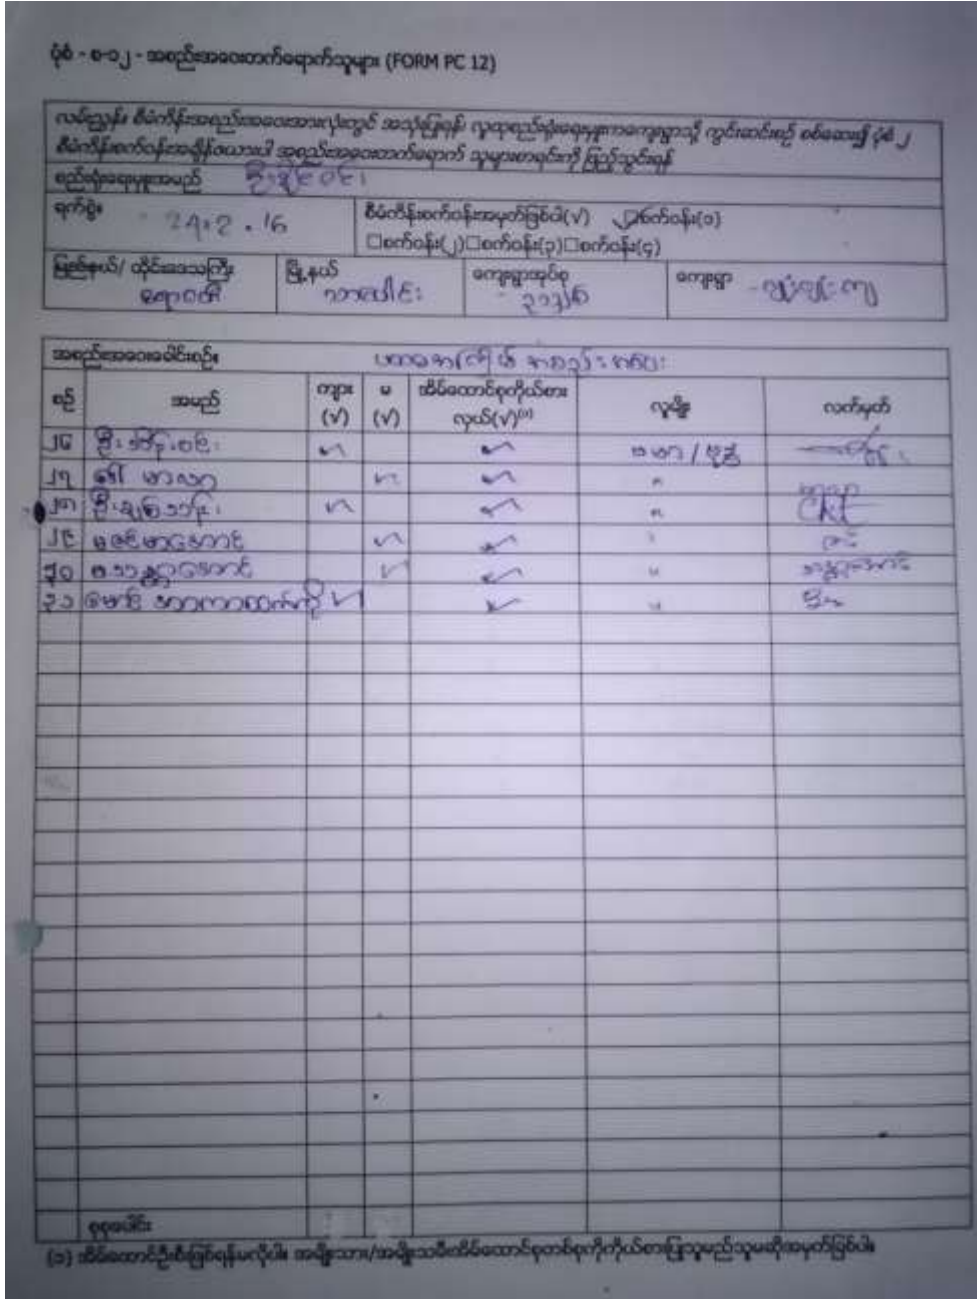 ပုံစံ - စ-၁၂ - အစည်းအဝေးတက်ရောက်သူများ (FORM PC 12)
လမ်းညွှန်။ စီမံကိန်းအစည်းအဝေးအားလုံးတွင် အသုံးပြုရန်၊ လူထုစည်းရုံးရေးမှူးကကျေးရွာသို့ ကွင်းဆင်းစဉ် စစ်ဆေး၍ ပုံစံ ၂
စီမံကိန်းစက်ဝန်းအချိန်ဇယားပါ အစည်းအဝေးတက်ရောက် သူများစာရင်းကို ဖြည့်သွင်းရန်
စည်းရုံးရေးမှူးအမည် ဦး ဝင်း
ရက်စွဲ။ 24.2.16 စီမံကိန်းစက်ဝန်းအမှတ်ဖြစ်ပါ(√) စက်ဝန်း(၁)
□စက်ဝန်း(၂)□စက်ဝန်း(၃)□စက်ဝန်း(၄)
ပြည်နယ်/ တိုင်းဒေသကြီး မြို့နယ် ကျေးရွာအုပ်စု ကျေးရွာ
ဧရာဝတီ သာပေါင်း
အစည်းအဝေးခေါင်းစဉ်။ ပထမအကြိမ် အစည်းအဝေး
စဉ် အမည် ကျား (√) မ (√) အိမ်ထောင်စုကိုယ်စားလှယ်(√)⁽ᵃ⁾ လူမျိုး လက်မှတ်
၂၆ ဦးသိန်းဝင်း ✓ ✓ ဗမာ / ဗုဒ္ဓ
၂၇ ဒေါ် မာလာ ✓ ✓ " မာလာ
၂၈ ဦးချစ်သိန်း ✓ ✓ " CKT
၂၉ မဇင်မာအောင် ✓ ✓ " ဇင်
၃၀ မသန္တာအောင် ✓ ✓ " သန္တာအောင်
၃၁ မောင် ✓ ✓ "
စုစုပေါင်း
(၁) အိမ်ထောင်ဦးစီးဖြစ်ရန်မလိုပါ။ အမျိုးသား/အမျိုးသမီးအိမ်ထောင်စုတစ်စုကိုကိုယ်စားပြုသူမည်သူမဆိုအမှတ်ဖြစ်ပါ။